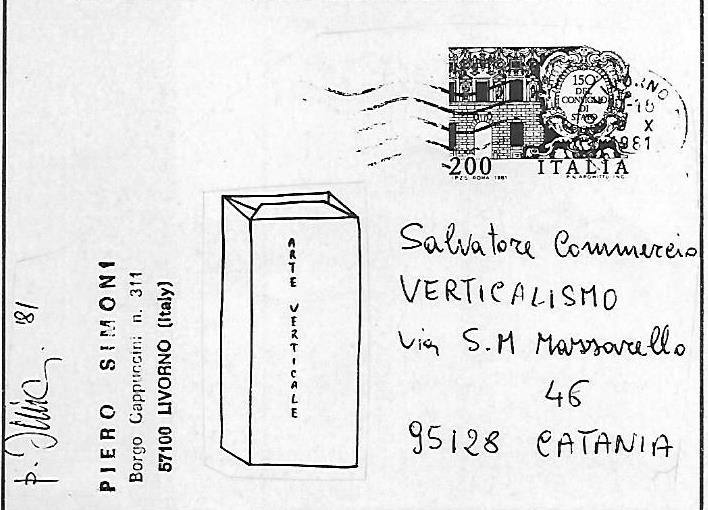 150
DEL
CONSIGLIO
DI
STATO
X
981
200 ITALIA
I.P.Z.S. ROMA 1981
ARTE VERTICALE
Salvatore Commercio
VERTICALISMO
Via S.M Massarello
46
95128 CATANIA
PIERO SIMONI
Borgo Cappuccini n. 311
57100 LIVORNO (Italy)
'81